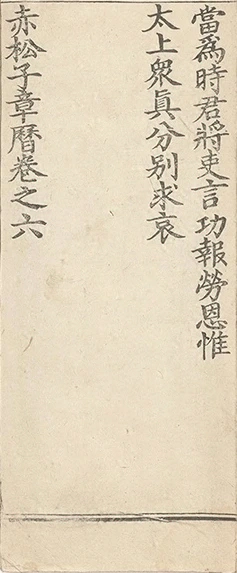 當爲時君將吏言功報勞恩惟
太上衆眞分别求哀
赤松子章曆卷之六